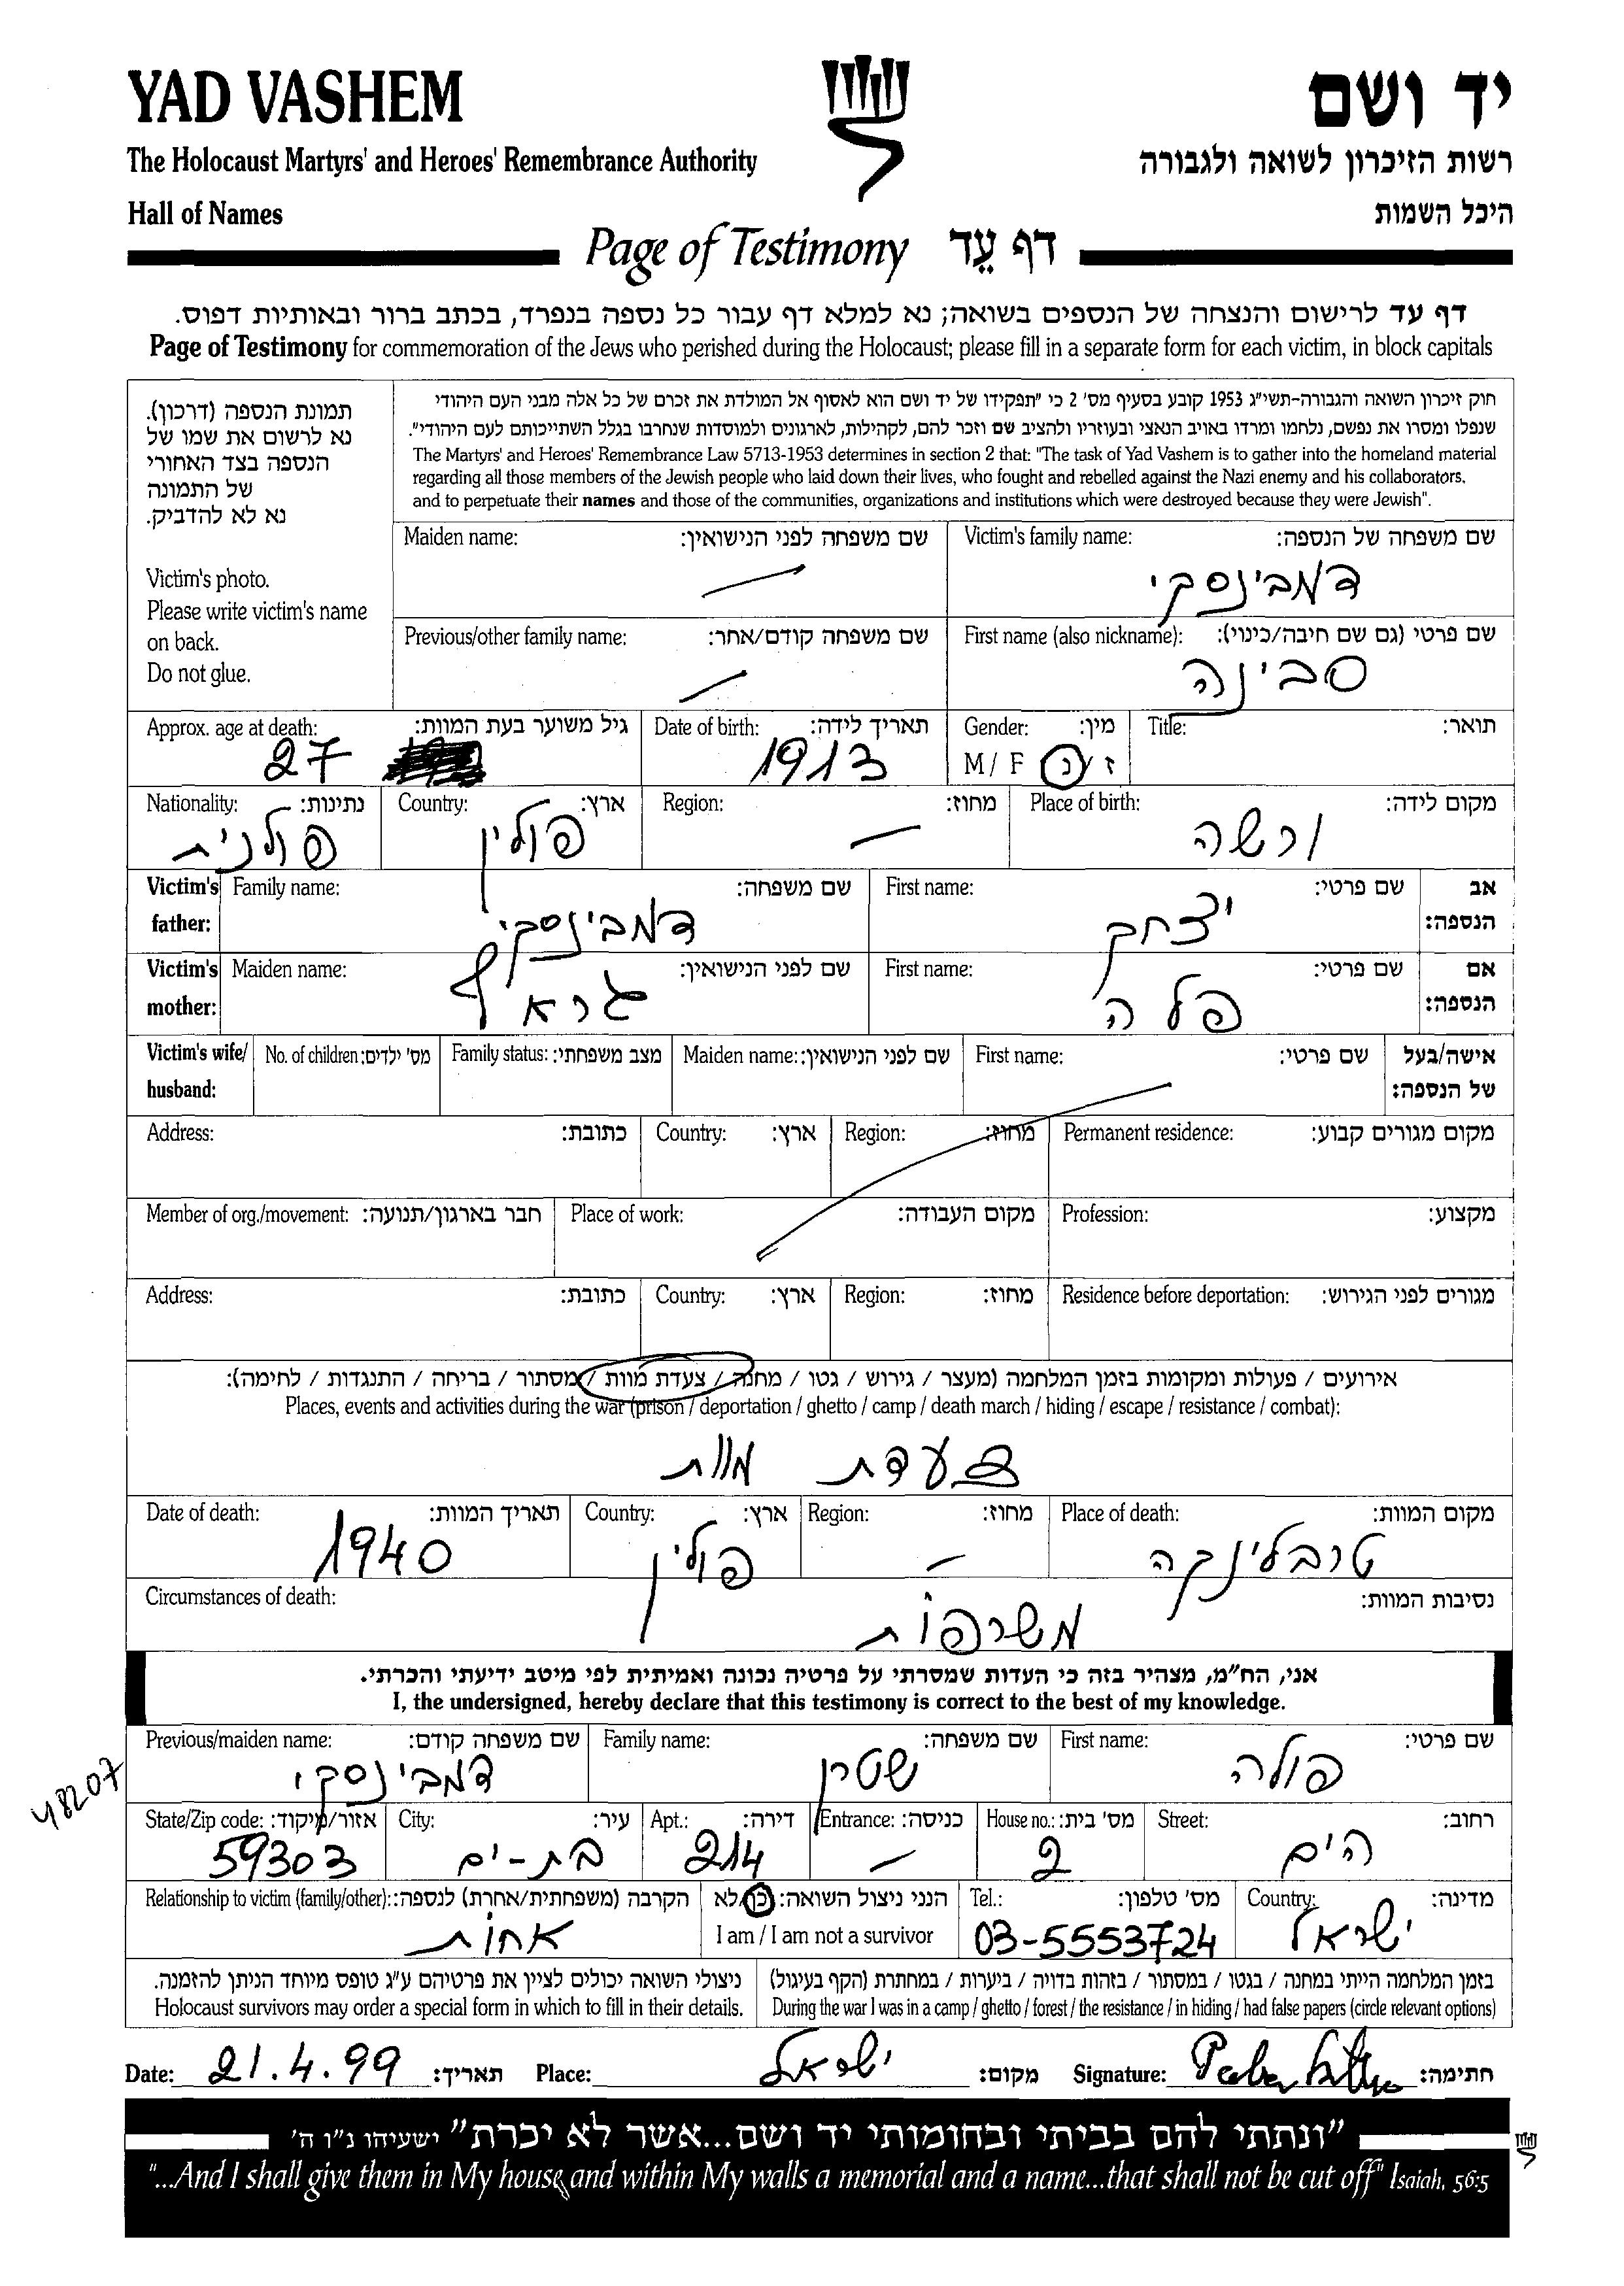 YAD VASHEM
יד ושם
The Holocaust Martyrs' and Heroes' Remembrance Authority
רשות הזיכרון לשואה ולגבורה
Hall of Names
היכל השמות
Page of Testimony דף עֵד
דף עד לרישום והנצחה של הנספים בשואה; נא למלא דף עבור כל נספה בנפרד, בכתב ברור ובאותיות דפוס.
Page of Testimony for commemoration of the Jews who perished during the Holocaust; please fill in a separate form for each victim, in block capitals
תמונת הנספה (דרכון).
נא לרשום את שמו של
הנספה בצד האחורי
של התמונה
נא לא להדביק.
Victim's photo.
Please write victim's name
on back.
Do not glue.
חוק זיכרון השואה והגבורה-תשי"ג 1953 קובע בסעיף מס' 2 כי "תפקידו של יד ושם הוא לאסוף אל המולדת את זכרם של כל אלה מבני העם היהודי
שנפלו ומסרו את נפשם, נלחמו ומרדו באויב הנאצי ובעוזריו ולהציב שם וזכר להם, לקהילות, לארגונים ולמוסדות שנחרבו בגלל השתייכותם לעם היהודי".
The Martyrs' and Heroes' Remembrance Law 5713-1953 determines in section 2 that: "The task of Yad Vashem is to gather into the homeland material
regarding all those members of the Jewish people who laid down their lives, who fought and rebelled against the Nazi enemy and his collaborators,
and to perpetuate their names and those of the communities, organizations and institutions which were destroyed because they were Jewish".
Victim's family name: שם משפחה של הנספה: Maiden name: שם משפחה לפני הנישואין:
דמבינסקי
First name (also nickname): שם פרטי (גם שם חיבה/כינוי): Previous/other family name: שם משפחה קודם/אחר:
סבינה
Title: תואר: Gender: מין: Date of birth: תאריך לידה: Approx. age at death: גיל משוער בעת המוות:
M / F ז / נ 1913 27
Place of birth: מקום לידה: Region: מחוז: Country: ארץ: Nationality: נתינות:
ורשה פולין פולנית
Victim's father: אב הנספה: First name: שם פרטי: Family name: שם משפחה:
יצחק דמבינסקי
Victim's mother: אם הנספה: First name: שם פרטי: Maiden name: שם לפני הנישואין:
פלה גראף
Victim's wife/ husband: אישה/בעל של הנספה: First name: שם פרטי: Maiden name: שם לפני הנישואין: Family status: מצב משפחתי: No. of children: מס' ילדים:
Permanent residence: מקום מגורים קבוע: Region: מחוז: Country: ארץ: Address: כתובת:
Profession: מקצוע: Place of work: מקום העבודה: Member of org./movement: חבר בארגון/תנועה:
Residence before deportation: מגורים לפני הגירוש: Region: מחוז: Country: ארץ: Address: כתובת:
אירועים / פעולות ומקומות בזמן המלחמה (מעצר / גירוש / גטו / מחנה / צעדת מוות / מסתור / בריחה / התנגדות / לחימה):
Places, events and activities during the war (prison / deportation / ghetto / camp / death march / hiding / escape / resistance / combat):
צעדת מוות
Place of death: מקום המוות: Region: מחוז: Country: ארץ: Date of death: תאריך המוות:
טרבלינקה פולין 1940
Circumstances of death: נסיבות המוות:
משרפות
אני, הח"מ, מצהיר בזה כי העדות שמסרתי על פרטיה נכונה ואמיתית לפי מיטב ידיעתי והכרתי.
I, the undersigned, hereby declare that this testimony is correct to the best of my knowledge.
First name: שם פרטי: Family name: שם משפחה: Previous/maiden name: שם משפחה קודם:
פולה שטרן דמבינסקי
48207
Street: רחוב: House no.: מס' בית: Entrance: כניסה: Apt.: דירה: City: עיר: State/Zip code: אזור/מיקוד:
הים 2 214 בת-ים 59303
Country: מדינה: Tel.: מס' טלפון: הנני ניצול השואה: כן/לא Relationship to victim (family/other): הקרבה (משפחתית/אחרת) לנספה:
ישראל 03-5553724 I am / I am not a survivor אחות
בזמן המלחמה הייתי במחנה / בגטו / במסתור / בזהות בדויה / ביערות / במחתרת (הקף בעיגול)
During the war I was in a camp / ghetto / forest / the resistance / in hiding / had false papers (circle relevant options)
ניצולי השואה יכולים לציין את פרטיהם ע"ג טופס מיוחד הניתן להזמנה.
Holocaust survivors may order a special form in which to fill in their details.
Date: 21.4.99 תאריך: Place: ישראל מקום: Signature: חתימה:
"ונתתי להם בביתי ובחומותי יד ושם...אשר לא יכרת" ישעיהו נ"ו ה'
"...And I shall give them in My house and within My walls a memorial and a name...that shall not be cut off" Isaiah, 56:5